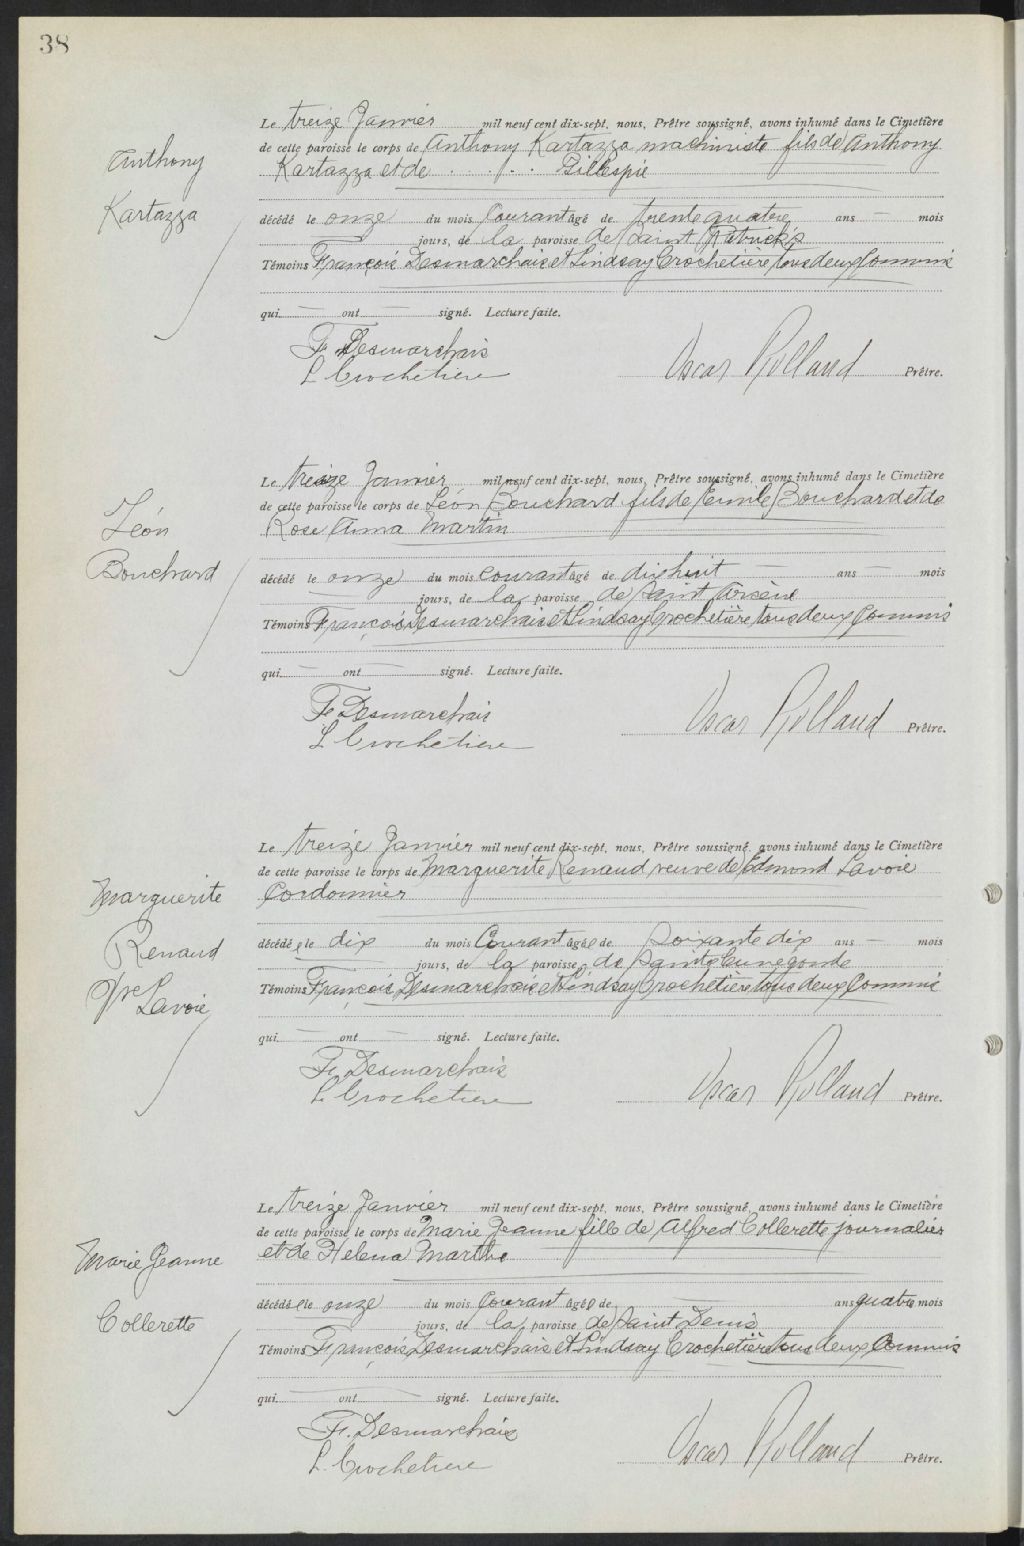 38
Anthony
Kartazza
Le treize Janvier mil neuf cent dix-sept, nous, Prêtre soussigné, avons inhumé dans le Cimetière
de cette paroisse le corps de Anthony Kartazza machiniste fils de Anthony
Kartazza et de . . . . . Gillespie
décédé le onze du mois Courant âgé de trente quatre ans — mois
jours, de la paroisse de Saint Patrick's
Témoins François Desmarchais et Lindsay Crochetière tous deux Commis
qui — ont — signé. Lecture faite.
F. Desmarchais
L Crochetiere
Oscar Rolland Prêtre.
Léon
Bouchard
Le treize Janvier mil neuf cent dix-sept, nous, Prêtre soussigné, avons inhumé dans le Cimetière
de cette paroisse le corps de Léon Bouchard fils de Emile Bouchard et de
Rose Anna Martin
décédé le onze du mois courant âgé de dix huit — ans — mois
jours, de la paroisse de Saint Arsène
Témoins François Desmarchais et Lindsay Crochetière tous deux Commis
qui — ont — signé. Lecture faite.
F. Desmarchais
L Crochetiere
Oscar Rolland Prêtre.
Marguerite
Renaud
Vve Lavoie
Le treize Janvier mil neuf cent dix-sept, nous, Prêtre soussigné, avons inhumé dans le Cimetière
de cette paroisse le corps de Marguerite Renaud veuve de Edmond Lavoie
Cordonnier
décédée le dix du mois Courant âgée de Soixante dix ans — mois
jours, de la paroisse de Sainte Cunegonde
Témoins François Desmarchais et Lindsay Crochetière tous deux Commis
qui — ont — signé. Lecture faite.
F. Desmarchais
L Crochetiere
Oscar Rolland Prêtre.
Marie Jeanne
Collerette
Le treize Janvier mil neuf cent dix-sept, nous, Prêtre soussigné, avons inhumé dans le Cimetière
de cette paroisse le corps de Marie Jeanne fille de Alfred Collerette journalier
et de Helena Marthe
décédée le onze du mois Courant âgée de — ans quatre mois
jours, de la paroisse de Saint Denis
Témoins François Desmarchais et Lindsay Crochetière tous deux Commis
qui — ont — signé. Lecture faite.
F. Desmarchais
L. Crochetiere
Oscar Rolland Prêtre.